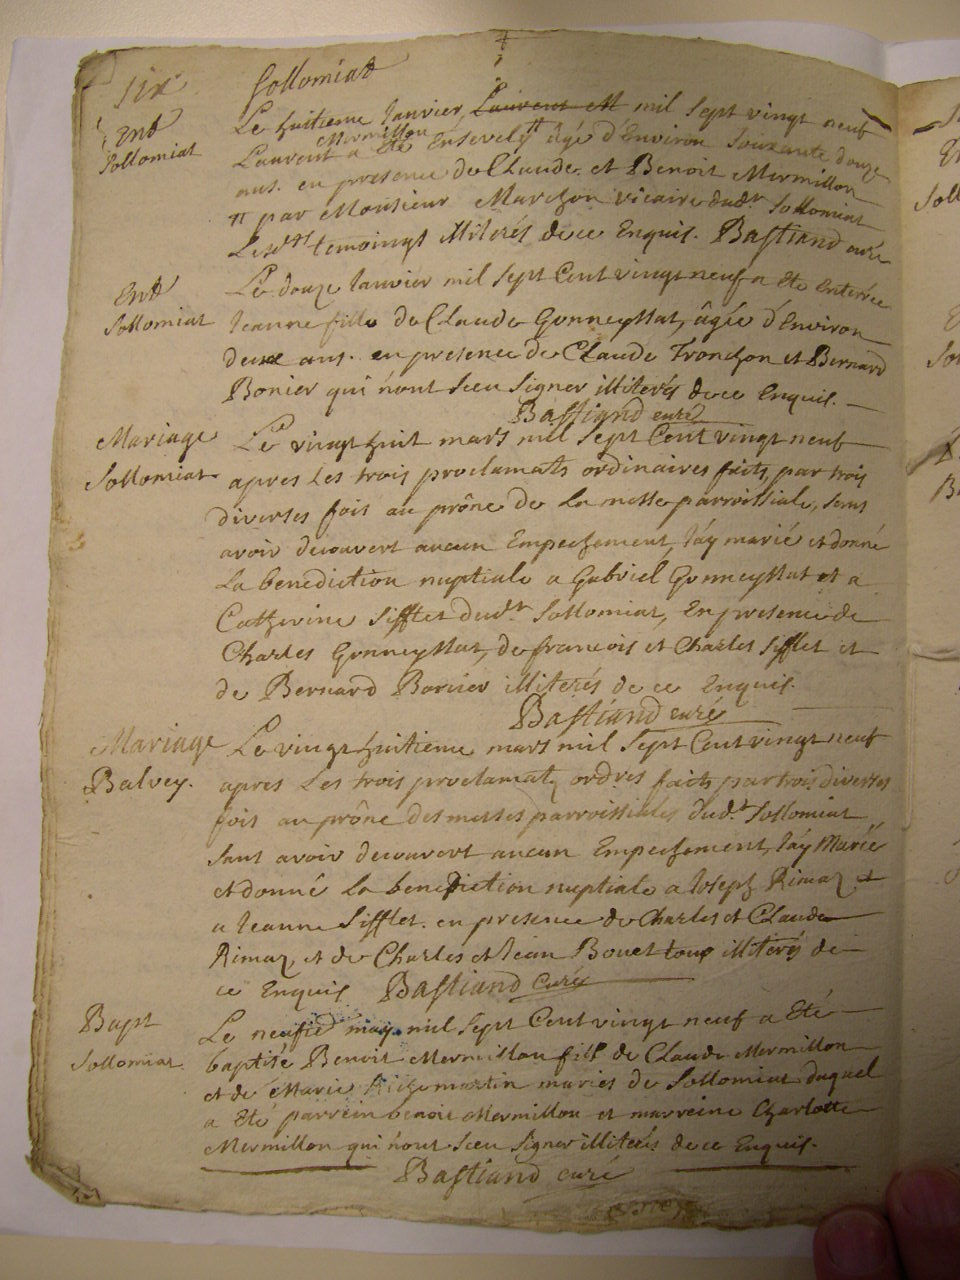 six
Sollomiat
Ent
Sollomiat
Le huitieme Janvier, Laurent M mil sept vingt neuf
Mermillon
Laurent a Eté Ensevely âgé d'Environ soixante douze
ans. en presence de Claude et Benoit Mermillon
par Monsieur vicaire dudt Sollomiat
Lesdts temoingt illiterés de ce Enquis. Bastiand curé
Ent
Sollomiat
Le douze Janvier mil sept Cent vingt neuf a Ete Enterrée
Jeanne fille de Claude Gonneyssat, âgée d'Environ
deux ans. en presence de Claude Tronchon et Bernard
Bonier qui n'ont sceu signer illiterés de ce Enquis.
Bastiand curé
Mariage
Sollomiat
Le vingt huit mars mil sept Cent vingt neuf
apres les trois proclamats ordinaires faits, par trois
diverses fois au prône de la messe parroissiale, sans
avoir decouvert aucun Empechement, J'áy marié et donné
La benediction nuptiale a Gabriel Gonneyssat et a
Catherine Sifflet dudt Sollomiat, En presence de
Charles Gonneyssat, de francois et Charles Sifflet et
de Bernard Bonier illiterés de ce Enquis.
Bastiand curé
Mariage
Balvey.
Le vingt huitieme mars mil sept Cent vingt neuf
apres Les trois proclamats ordres faits par trois diverses
fois au prône des messes parroissiales dudt Sollomiat
sans avoir decouvert aucun Empechement, J'áy Marié
et donné La benediction nuptiale a Joseph Rimaz et
a Jeanne Sifflet. en presence de Charles et Claude
Rimaz, et de Charles et Jean Bouet tous illiterés de
ce Enquis Bastiand Curé
Bapt
Sollomiat.
Le may mil sept Cent vingt neuf a Eté
baptisé Benoit Mermillon fils de Claude Mermillon
et de Marie martin mariés de Sollomiat duquel
a Eté parrein benoit Mermillon et marreine Charlotte
Mermillon qui n'ont sceu signer illiterés de ce Enquis.
Bastiand curé